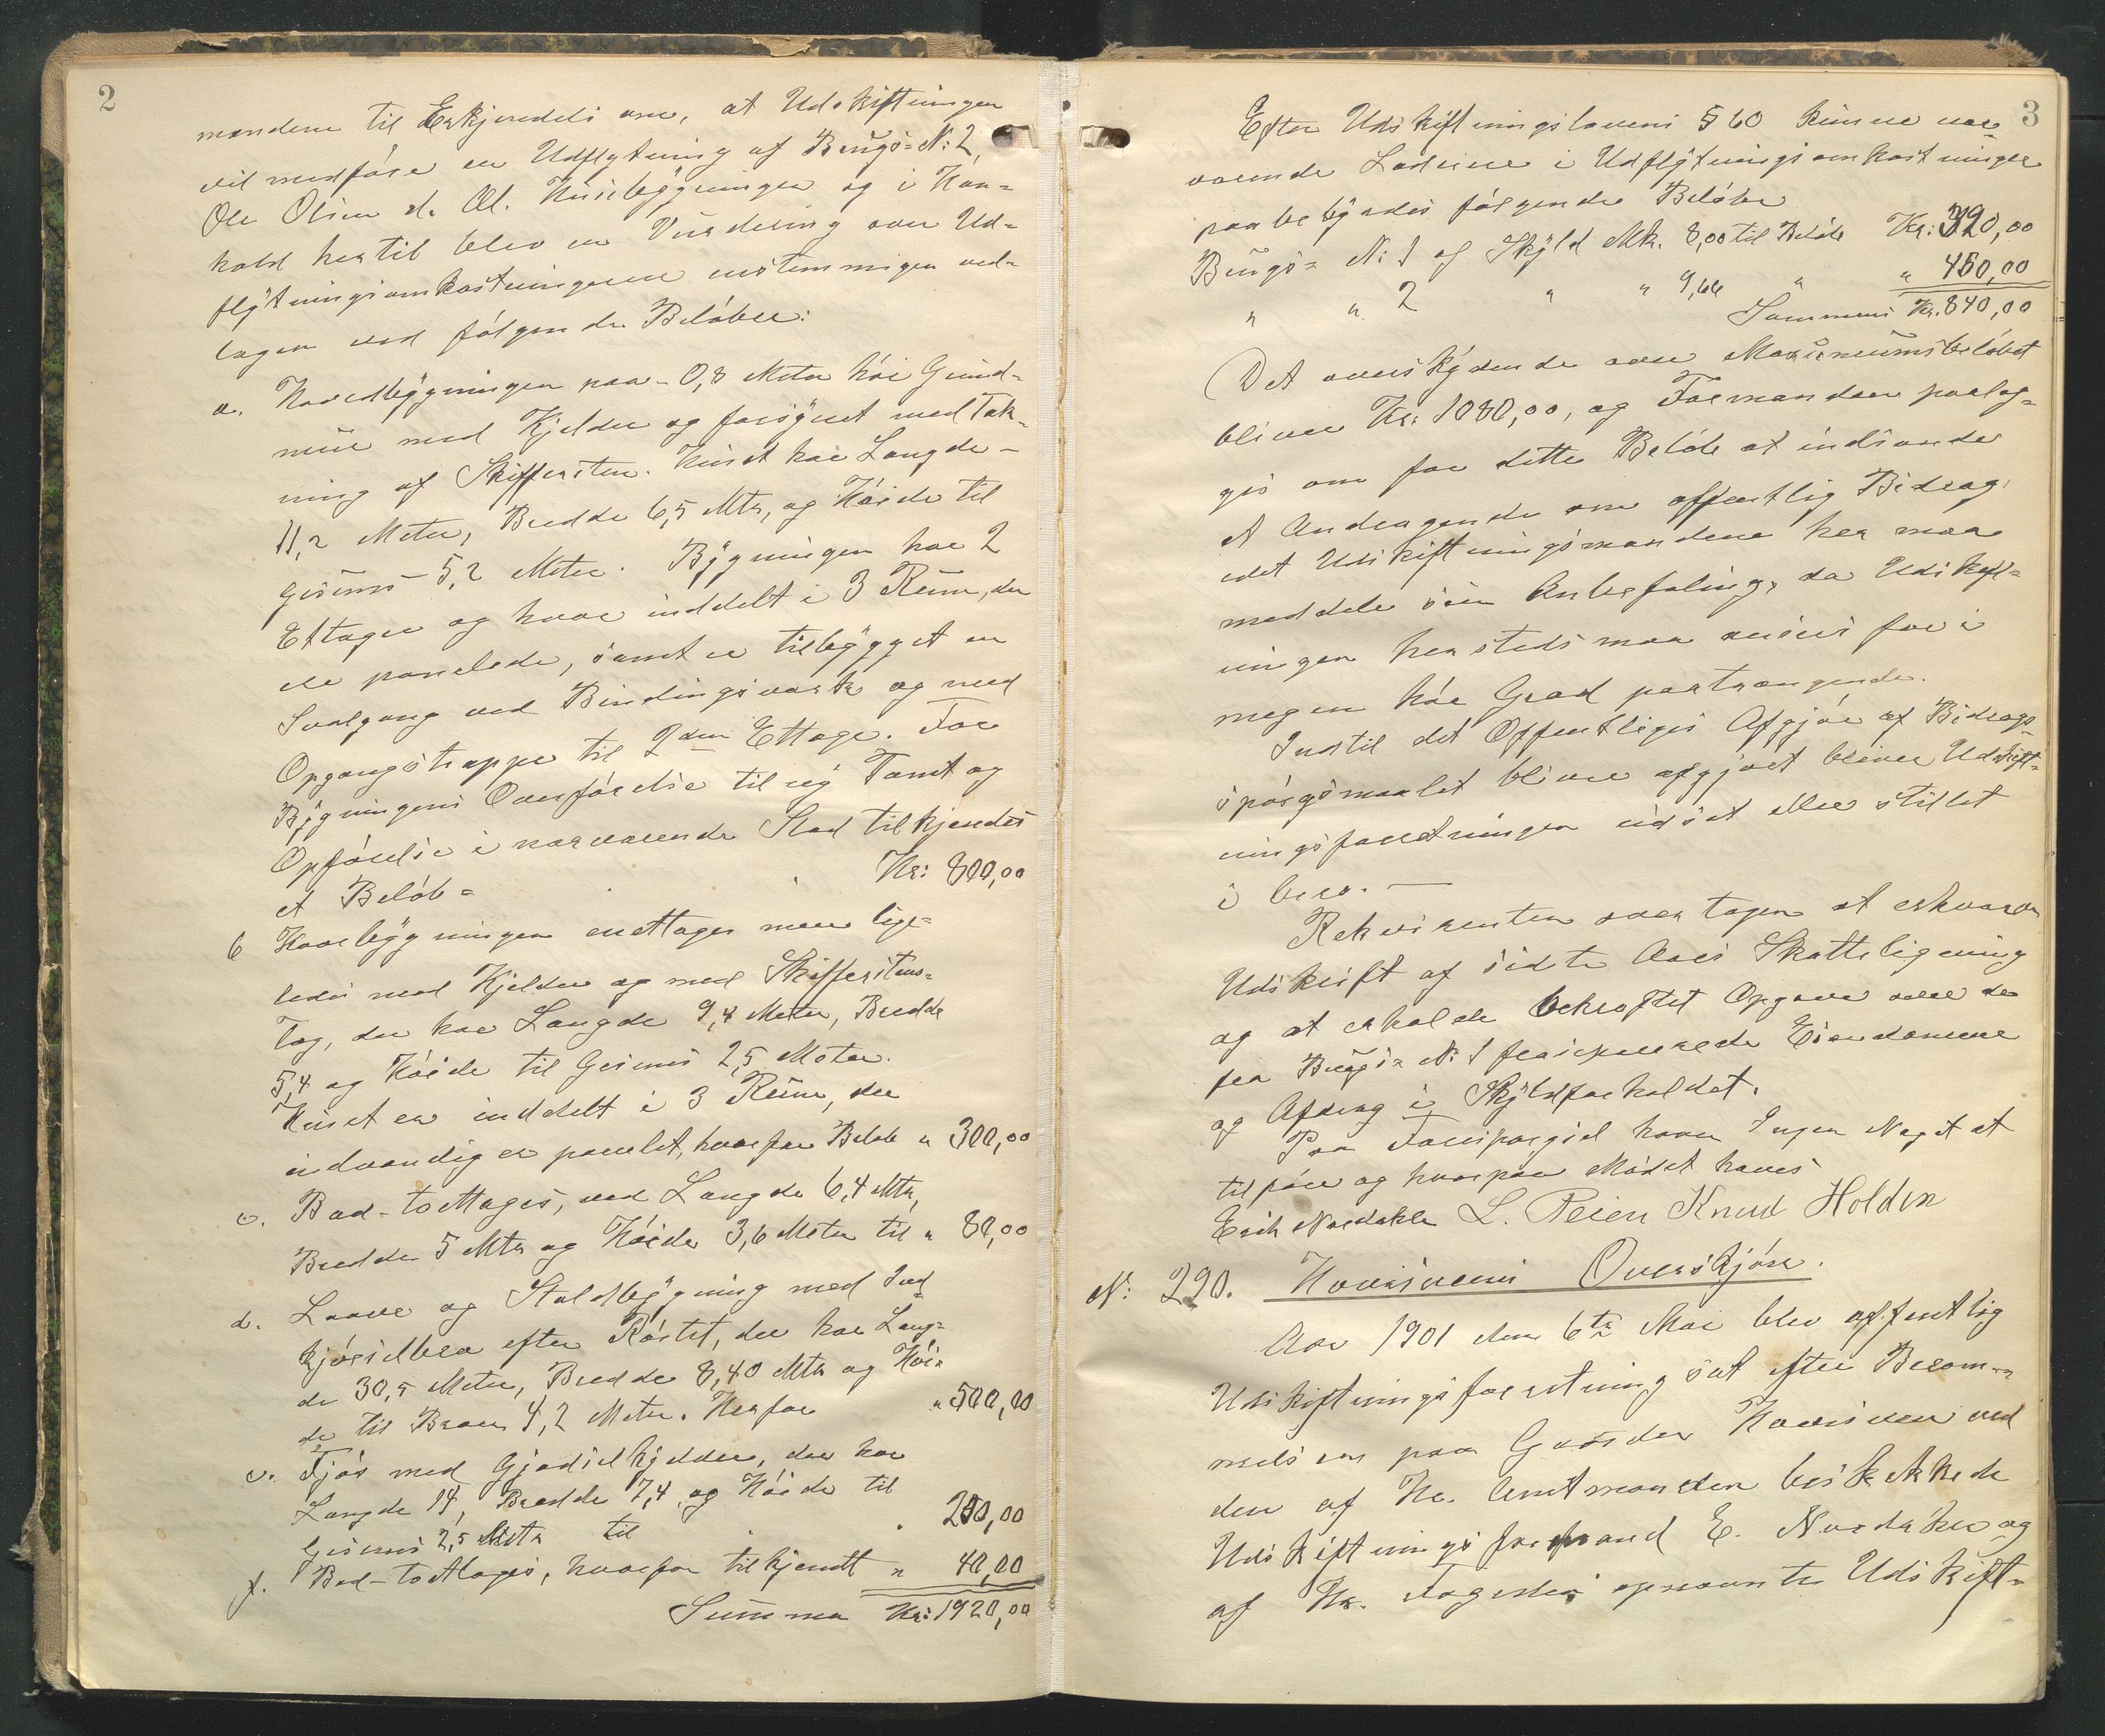 2
mændene til Erkjendelse om, at Udskiftningen
vil medføre en Udflytning af Brugs-N: 2,
Ole Olsens d. Æl. Husebygninger og i Hen-
hold hertil blev en Vurdering over Ud-
flytningsomkostningerne enstemmigen ved-
tagen ved følgende Beløber:
a. Hovedbygningen paa 0,8 Meter høi Grund-
mur med Kjelder og forsynet med Tæk-
ning af Skiffersten. Huset har Længde
11,2 Meter, Bredde 6,5 Mtr, og Høide til
Gesims 5,2 Meter. Bygningen har 2
Ettager og hver inddelt i 3 Rum, der
ere panelede, samt er tilbygget en
Svalgang ved Bindingsværk og med
Opgangstrappe til 2den Ettage. For
Bygningens Overførelse til ny Tomt og
Opførelse i nærværende Stad tilkjendes
et Beløb = Kr: 800,00
b Hovebygningen enettages men lige-
ledes med Kjelder og med Skifferstens-
Tag, der har Længde 9,4 Meter, Bredde
5,4 og Høide til Gesims 2,5 Meter.
Huset er inddelt i 3 Rum, der
indvendig er panelet, hvorfor Beløb " 300,00
c. Bud-toettages, ved Længde 6,4 Mtr,
Bredde 5 Mtr og Høide 3,6 Meter til " 80,00
d. Laave og Staldbygning med Ind-
kjørselbro efter Røstet, der har Læng-
de 30,5 Meter, Bredde 8,40 Mtr og Høi-
de til Broen 4,2 Meter. Herfor " 500,00
e. Fjøs med Gjødselkjelder, der har
Længde 14, Bredde 7,4 og Høide til
Gesims 2,5 Mtr til " 200,00
f. Bod-toettages, hvorfor tilkjendt " 40,00
Summa Kr: 1920,00
3
Efter Udskiftningslovens § 60 kunne nær-
værende Lodeiere i Udflytningsomkostninger
paabebyrdes følgende Beløber
Brugs- N: 1 af Skyld Mk. 8,00 til Beløb Kr: 390,00
" " 2 " " 9,66 " " 450,00
Sammens Kr. 840,00
Det overskydende over Maximumsbeløbet
bliver Kr: 1080,00, og Formanden paalag-
ges om for dette Beløb at indsende
et Andragende om offentlig Bidrag,
idet Udskiftningsmændene her maa
meddele sin Anbefaling, da Udskift-
ningen hersteds maa ansees for i
megen høi Grad paatrængende.
Indtil det Offentliges Afgjør af Bidrags-
spørgsmaalet bliver afgjort bliver Udskift-
ningsforretningen udsat eller stillet
i bero. —
Rekvirenten overtager at erhverve
Udskrift af sidste Aars Skatteligning
og at erholde bekræftet Opgave over de
fra Brugs- N: 1 fraseparerede Eiendomme
og Afdrag i Skyldforholdet.
Paa Forespørgsel havde Ingen Noget at
tilføre og hvorpaa Mødet hæves
Erik Nordaker L. Reien Knud Holden
N: 290. Hovisveens Overskjøn.
Aar 1901 den 6te Mai blev offentlig
Udskiftningsforretning sat efter Beram-
melsen paa Gaarden Hovisveen ved
den af Hr. Amtmanden beskikkede
Udskiftningsformand E. Nordaker og
af Hr. Fogden opnævnte Udskift-